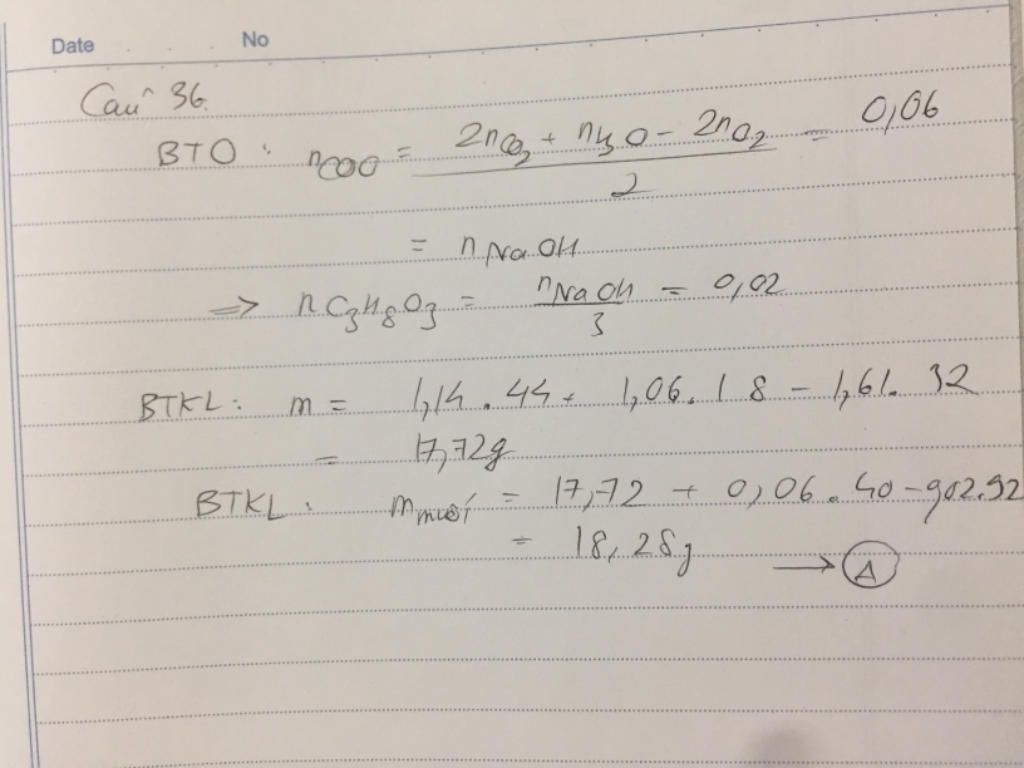 Date No
Câu 36.
BTO : nCOO = (2nCO2 + nH2O - 2nO2) / 2 = 0,06
= nNaOH
=> nC3H8O3 = nNaOH / 3 = 0,02
BTKL : m = 1,14 . 44 + 1,06 . 18 - 1,61 . 32
= 17,72g
BTKL : m muối = 17,72 + 0,06 . 40 - 0,02 . 92
= 18,28g → A